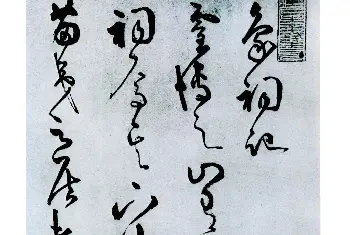 象祠記
靈博之山有
祠焉其下
苗夷之居